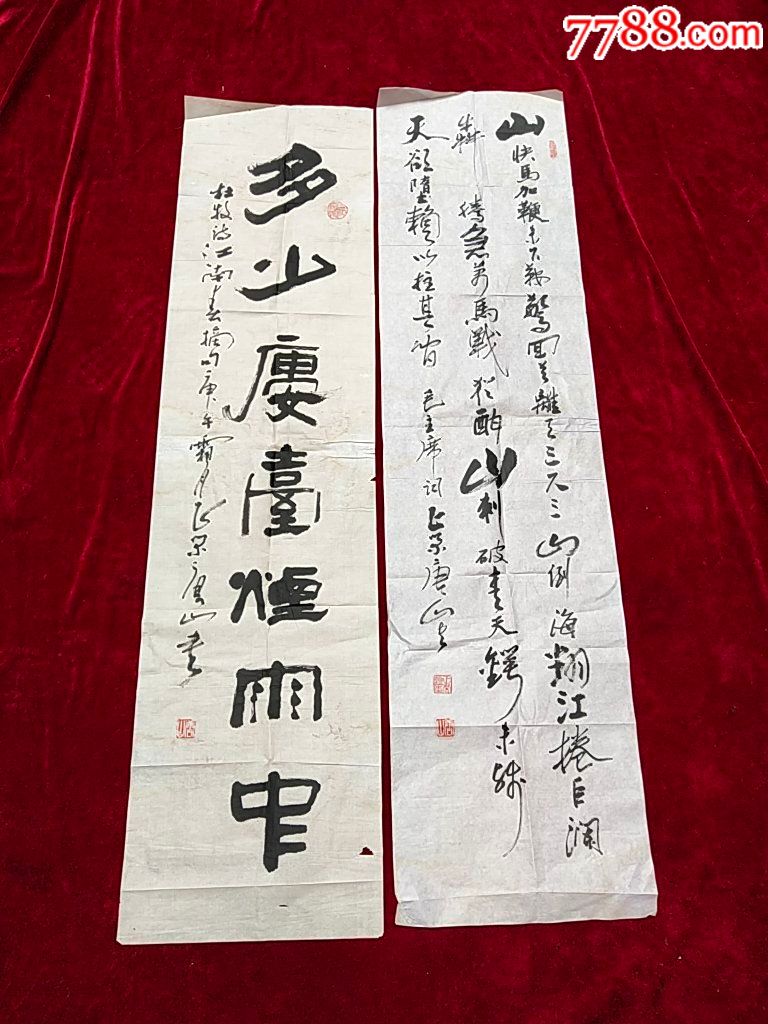 7788.com
山快馬加鞭未下鞍驚回首離天三尺三山倒海翻江捲巨瀾
奔騰急萬馬戰猶酣山刺破青天鍔未殘
天欲墮賴以拄其間毛主席詞
唐山
多少廔臺煙雨中
杜牧诗江南春摘句庚午霜月
唐山书